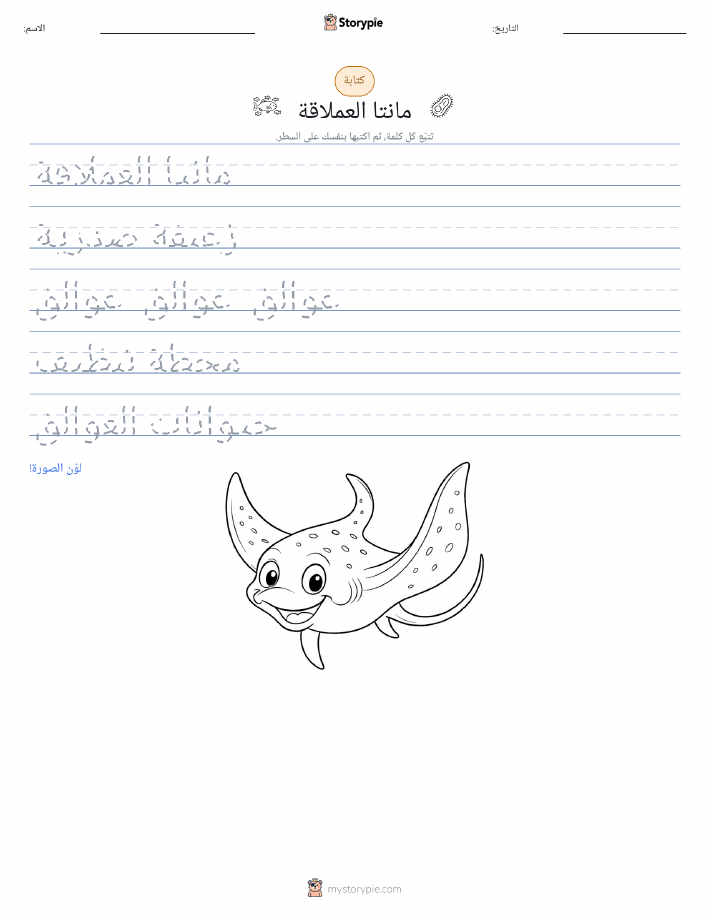 الاسم:
Storypie
التاريخ:
كتابة
مانتا العملاقة
تتبّع كل كلمة، ثم اكتبها بنفسك على السطر.
مانتا العملاقة
زعنفة صدرية
عوالق عوالق عوالق
محطة تنظيف
حيوانات العوالق
لوّن الصورة!
mystorypie.com